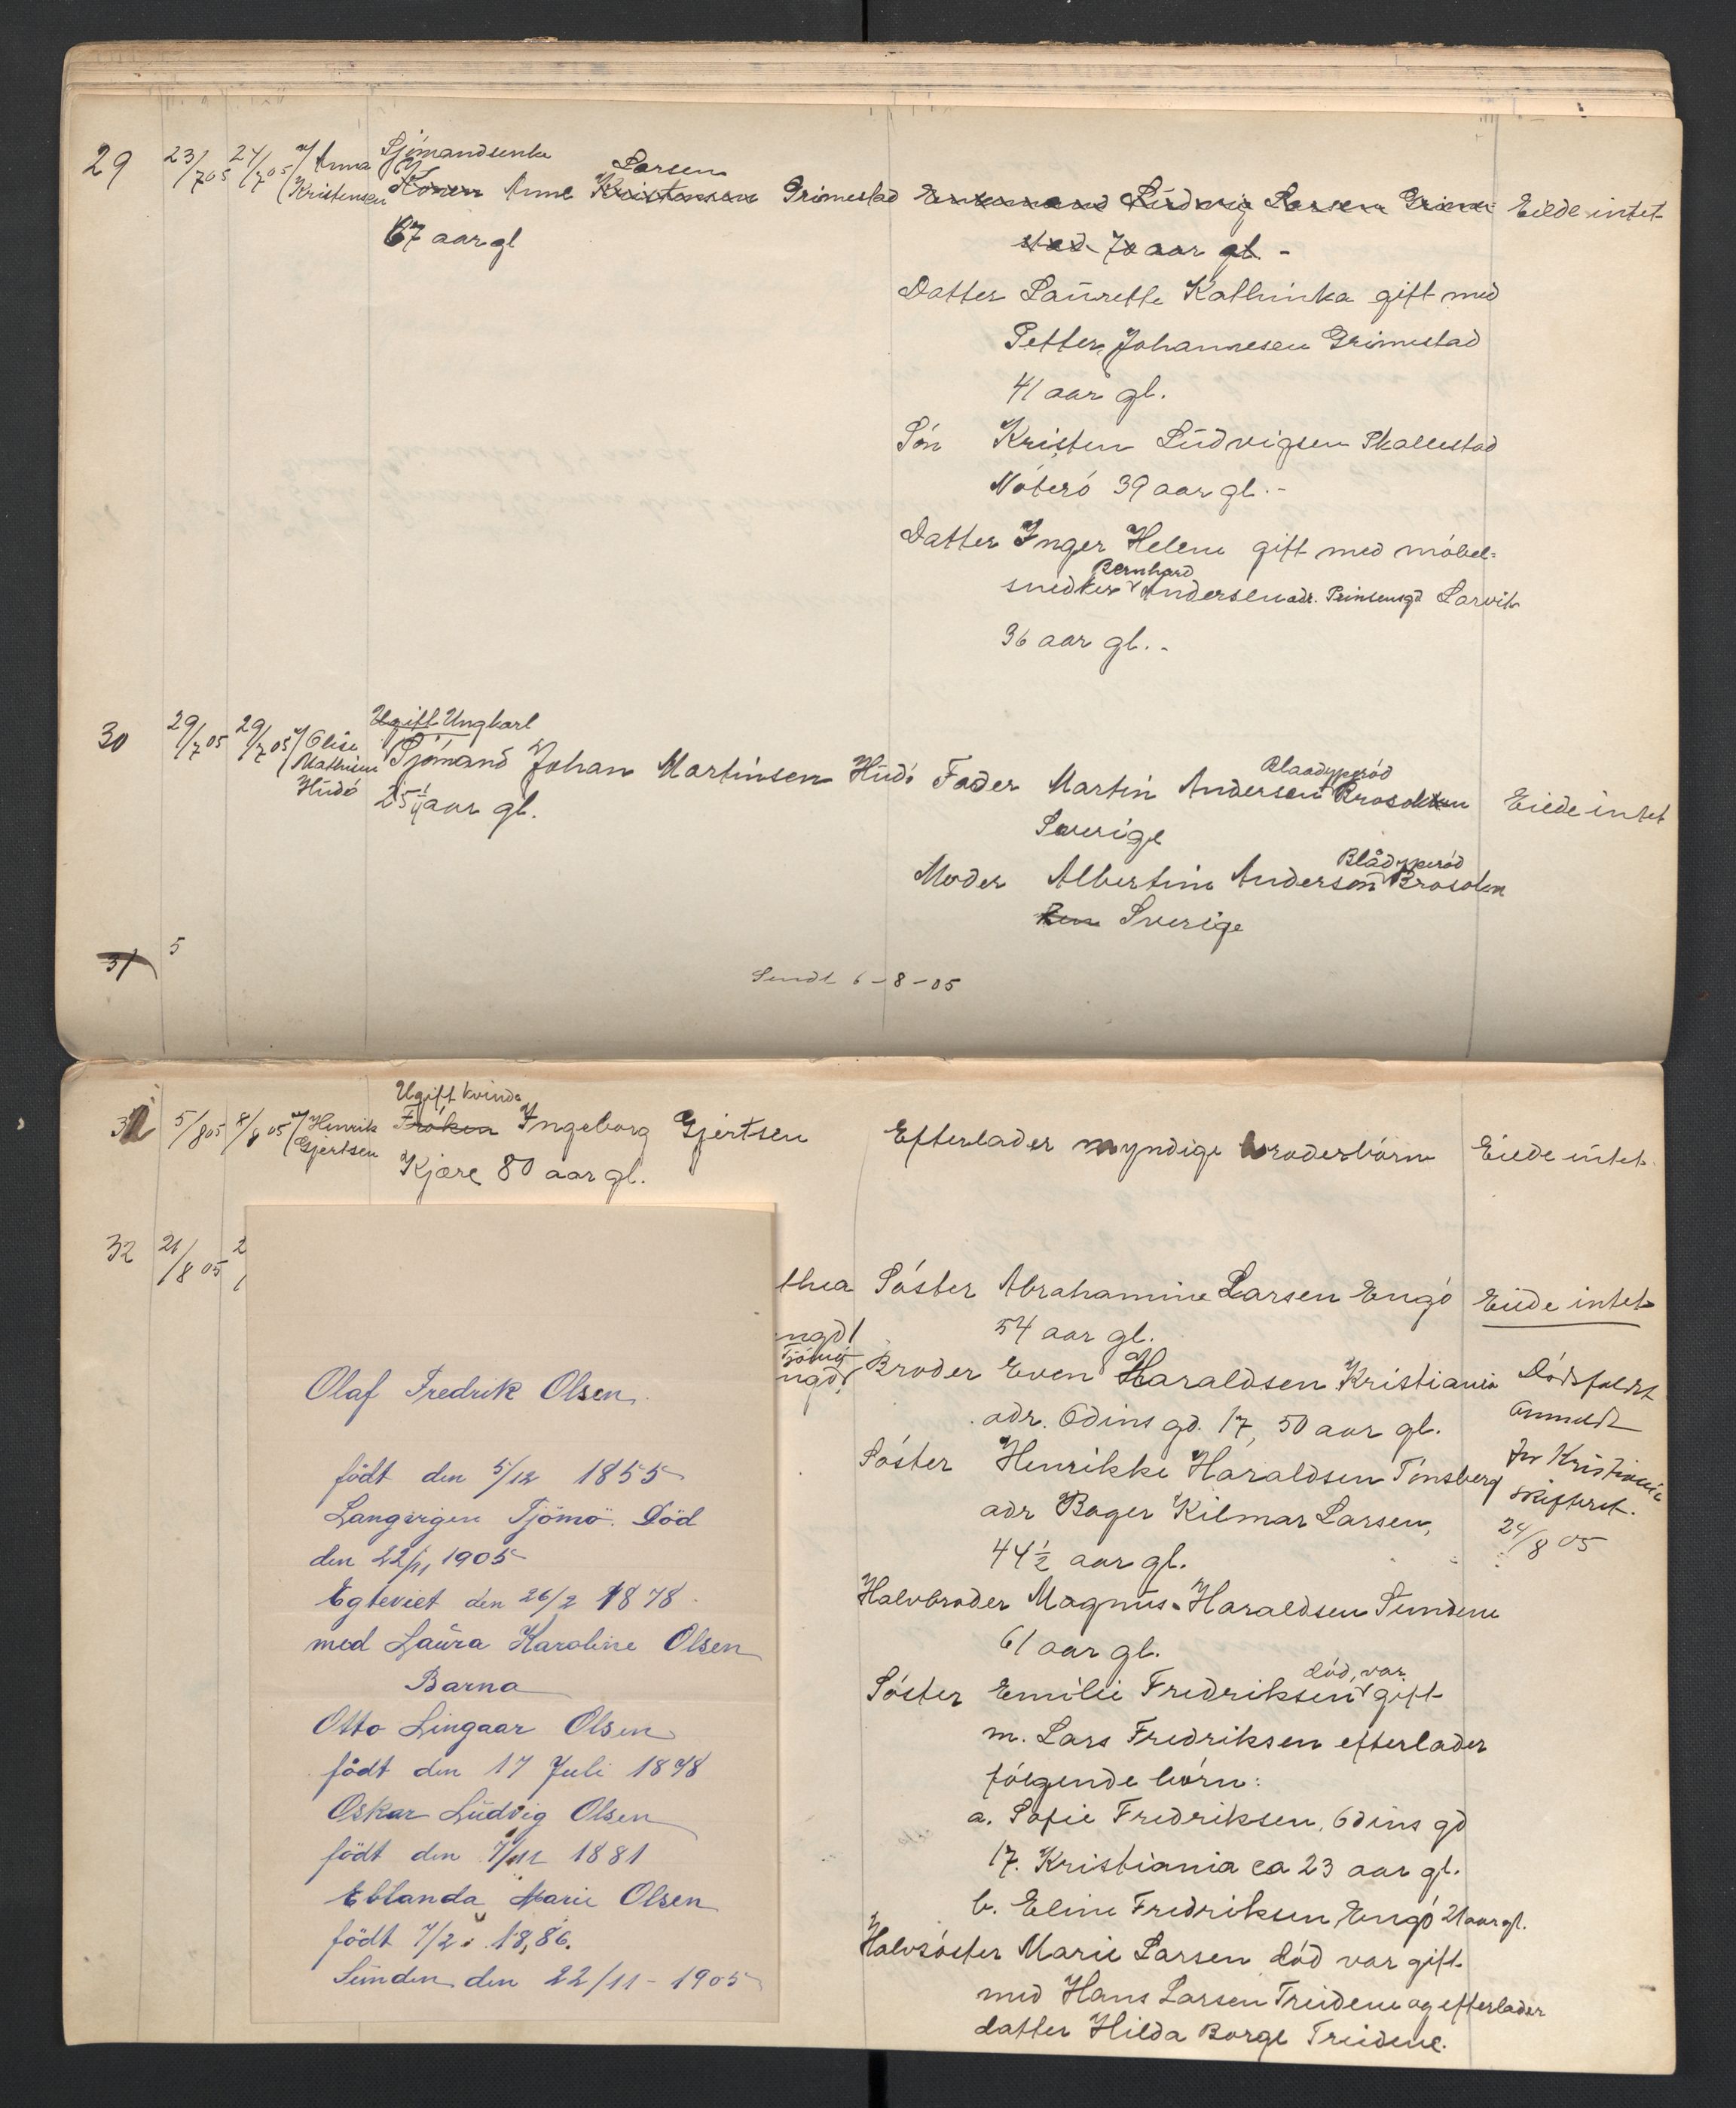 29 23/7 05 24/7 05 v/ Anna Kristensen
Sjømandsenke
Konen Anne Kristensen Larsen Grimestad
67 aar gl
Enkemand Ludvig Larsen Grime-
stad 70 aar gl. -
Eiede intet
Datter Laurette Kathinka gift med
Petter Johannesen Grimestad
41 aar gl.
Søn Kristen Ludvigsen Skallestad
Nøterø 39 aar gl. -
Datter Inger Helene gift med møbel-
snedker Bernhard Andersen adr. Prinsensgd Larvik
36 aar gl. -
30 29/7 05 29/7 05 v/ Olise Mathisen Hudø
Ugift Ungkarl
Sjømand Johan Martinsen Hudø
25 1/4 aar gl.
Fader Martin Andersen Blaadyperød
Sverige
Eiede intet
Moder Albertine Anderson Blådyperød
Sverige
31 5
Sendt 6-8-05
31 5/8 05 8/8 05 v/ Henrik Gjertsen
Ugift kvinde
Frøken Ingeborg Gjertsen
Kjære 80 aar gl.
Efterlader myndige broderbørn
Eiede intet.
32 21/8 05 2
thea
ngd!
Tjømø
ngd!
Søster Abrahamine Larsen Engø
54 aar gl.
Eiede intet
Broder Even Haraldsen Kristiania
adr. Odins gd. 17, 50 aar gl.
Søster Henrikke Haraldsen Tønsberg
adr Bager Kilmar Larsen,
44 1/2 aar gl.
Dødsfaldet
anmeldt
for Kristiania
skifteret.
24/8 05
Halvbroder Magnus Haraldsen Sundene
61 aar gl.
Søster Emilie Fredriksen død, var gift
m. Lars Fredriksen efterlader
følgende børn:
a. Sofie Fredriksen, Odins gd
17. Kristiania ca 23 aar gl.
b. Eline Fredriksen, Engø 21 aar gl.
Halvsøster Marie Larsen død var gift
med Hans Larsen Treidene og efterlader
datter Hilda Borge Treidene.
Olaf Fredrik Olsen.
födt den 5/12 1855
Langvigen Tjömö. Död
den 22/11 1905
Egteviet den 26/2 1878
med Laura Karoline Olsen
Barna
Otto Lingaar Olsen
födt den 17 Juli 1878
Oskar Ludvig Olsen
födt den 7/11 1881
Eblanda Marie Olsen
födt 7/2 1886.
Sunden den 22/11 - 1905